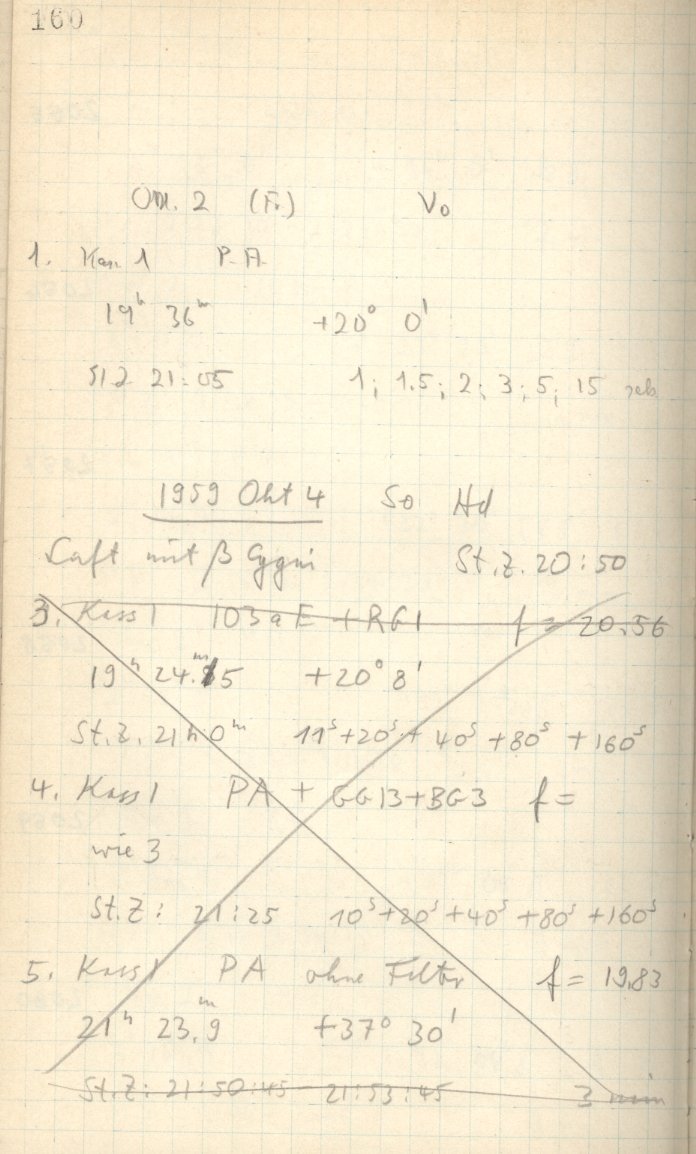 160
2 (Fr.) Vo
1. Kass 1 P.A.
19ʰ 36ᵐ +20° 0'
StZ 21:05 1; 1.5; 2; 3; 5; 15 sek
1959 Okt 4 So Hd
Luft mit β Cygni St.Z. 20:50
3. Kass 1 103aE + RG1 f = 20,56
19ʰ 24.ᵐ15 +20° 8'
St.Z. 21h0ᵐ 11ˢ+20ˢ+40ˢ+80ˢ+160ˢ
4. Kass 1 PA + GG13+BG3 f =
wie 3
St.Z: 21:25 10ˢ+20ˢ+40ˢ+80ˢ+160ˢ
5. Kass 1 PA ohne Filter f = 19,83
21ʰ 23,ᵐ9 +37° 30'
St.Z: 21:50:45 21:53:45 3 min